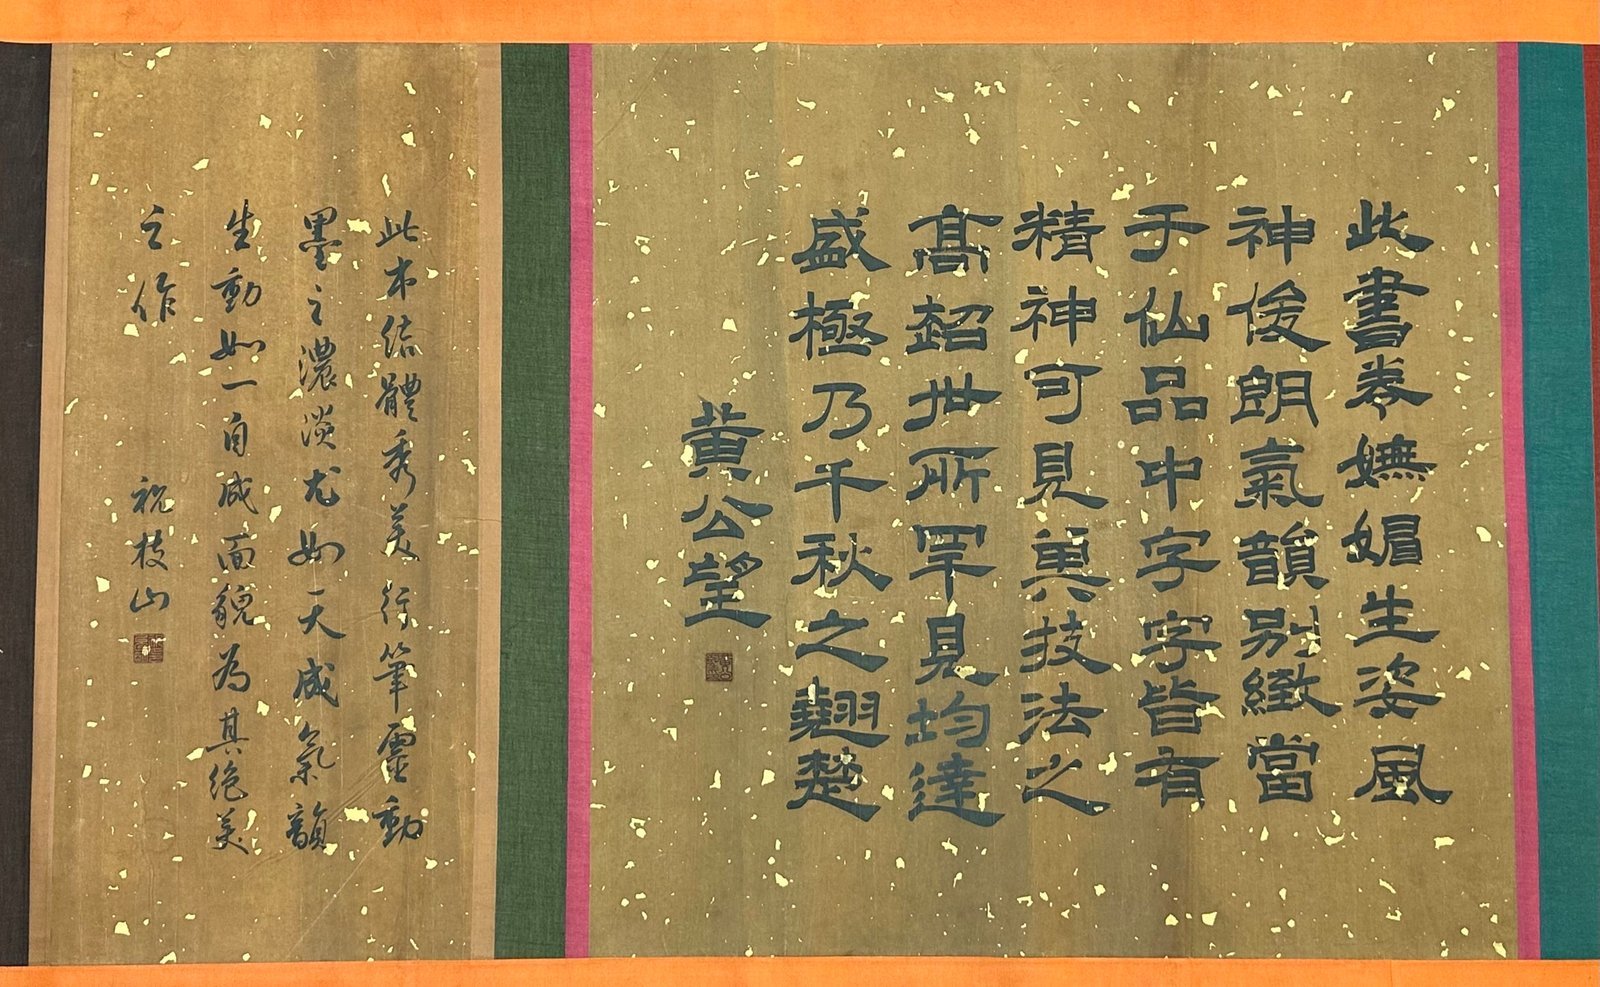 此書卷嫵媚生姿風
神俊朗氣韻別緻當
于仙品中字字皆有
精神可見其技法之
高超世所罕見均達
盛極乃千秋之翹楚
黃公望
此本結體秀美行筆靈動
墨之濃淡尤如天成氣韻
生動如一自成面貌為其絕美
之作
祝枝山